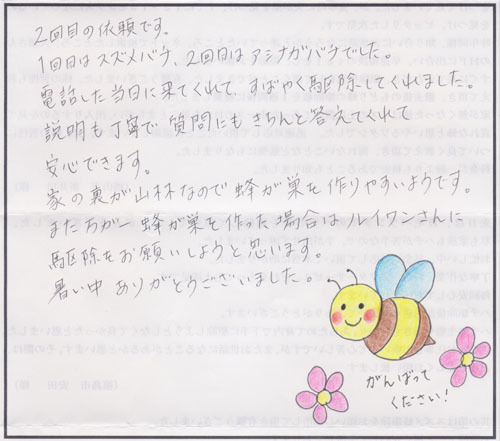 2回目の依頼です。
1回目はスズメバチ、2回目はアシナガバチでした。
電話した当日に来てくれて、すばやく駆除してくれました。
説明も丁寧で、質問にもきちんと答えてくれて
安心できます。
家の裏が山林なので蜂が巣を作りやすいようです。
また万が一蜂が巣を作った場合はルイワンさんに
駆除をお願いしようと思います。
暑い中 ありがとうございました。
がんばって
ください!